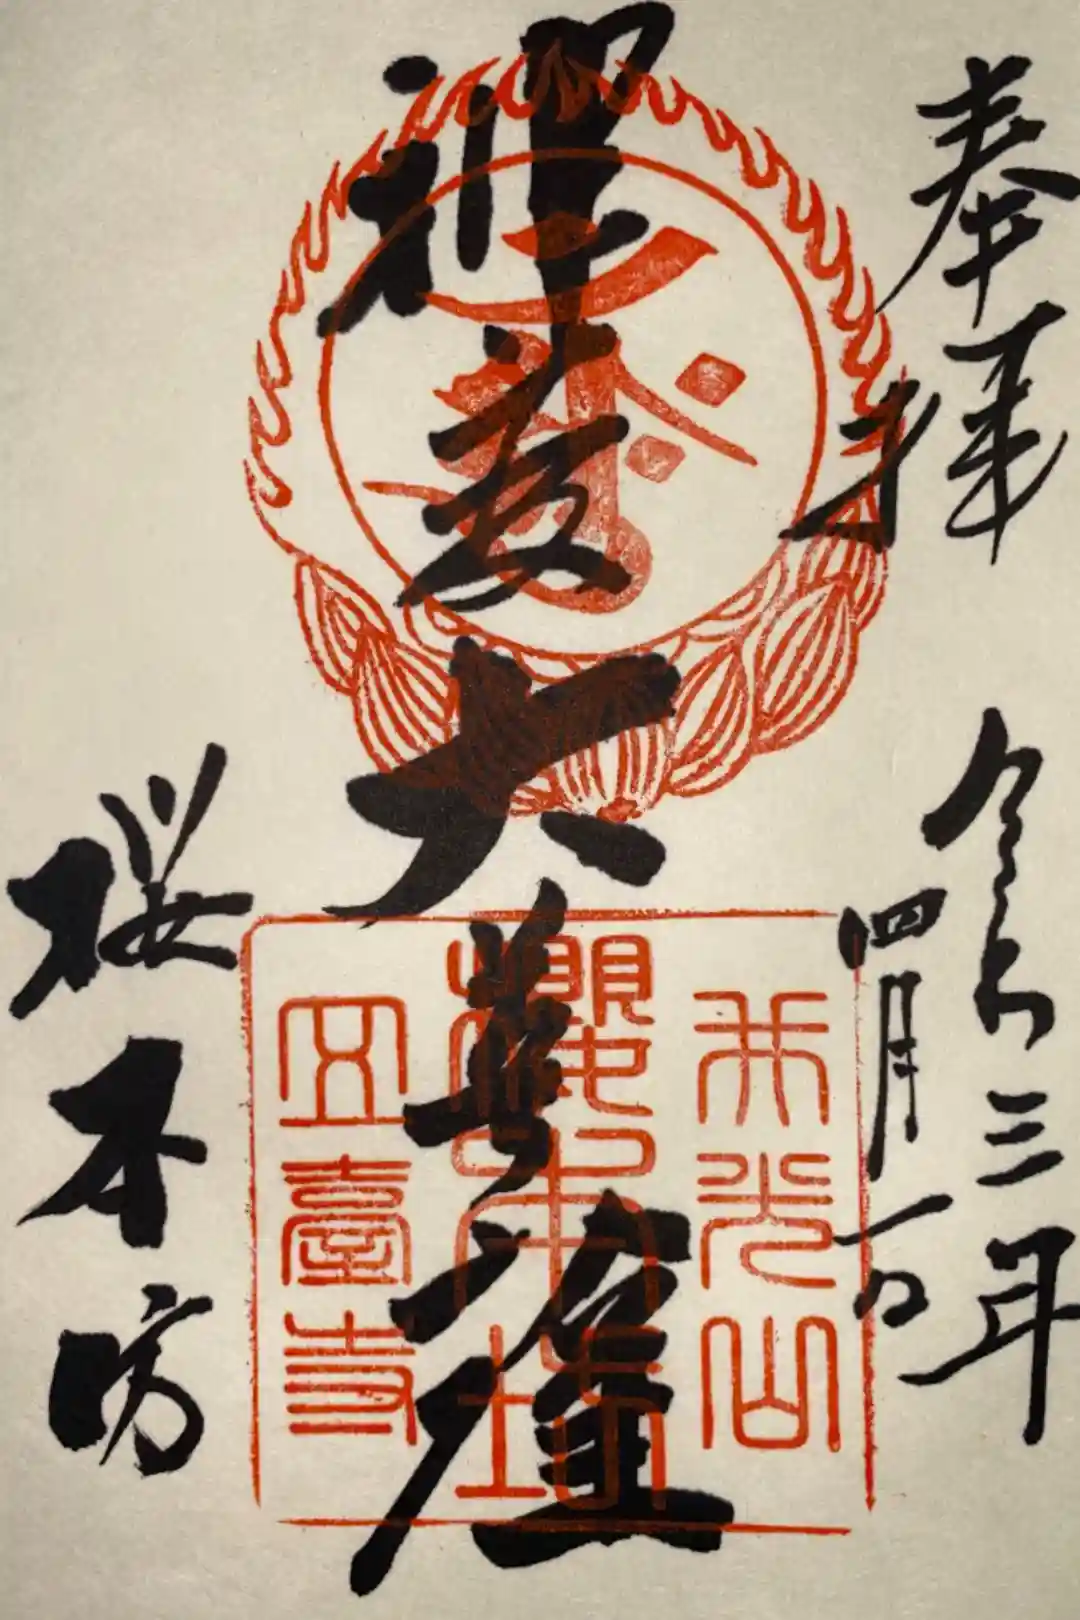 奉拝
令和三年
四月一日
神変大菩薩
桜本坊
井光山
櫻本坊
五臺寺